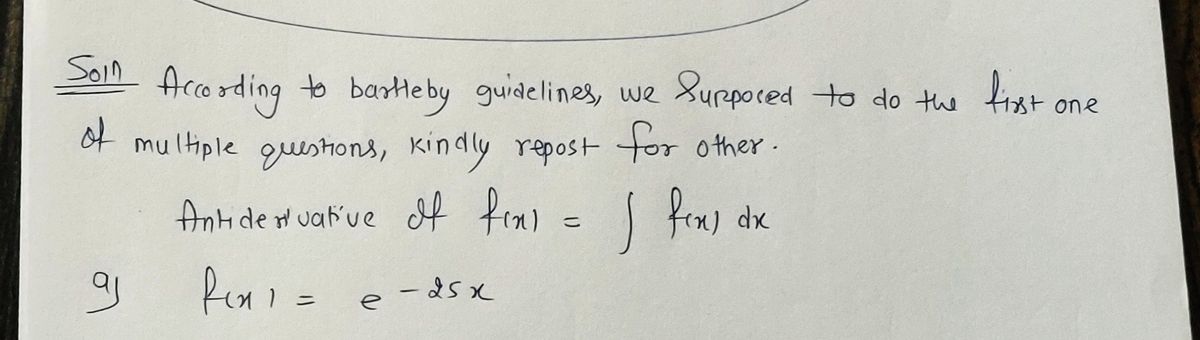 Soln According to bartleby guidelines, we Supposed to do the first one
of multiple questions, kindly repost for other.
Antiderivative of f(x) = ∫ f(x) dx
a) f(x) = e^-25x